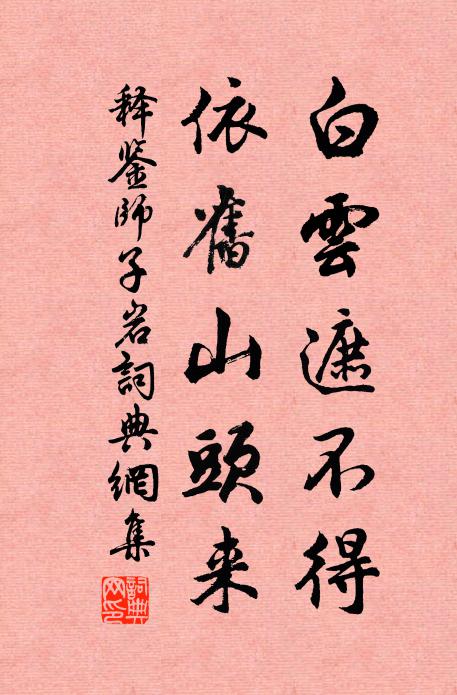 白雲遮不得
依舊山頭来
释鉴師子岩詞典網集
詞典网印